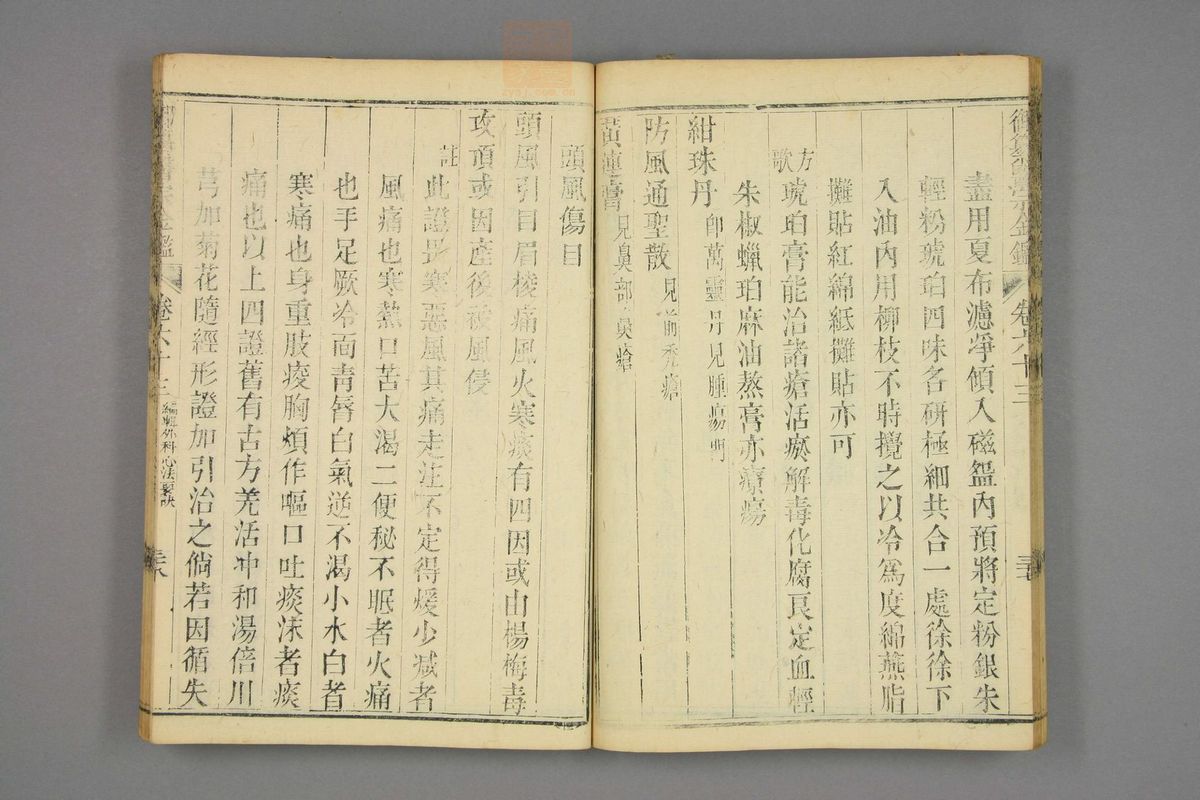 盡用夏布濾凈傾入磁盌內預將定粉銀朱
輕粉琥珀四味各研極細共合一處徐徐下
入油內用柳枝不時攪之以冷爲度綿燕脂
攤貼紅綿紙攤貼亦可
方歌
琥珀膏能治諸瘡活瘀解毒化腐良定血輕
朱椒蠟珀麻油熬膏亦療瘍
紺珠丹 卽萬靈丹見腫瘍門
防風通聖散 見前禿瘡
黃連膏 見鼻部鼻瘡
卷六十三
頭風傷目
頭風引目眉棱痛風火寒痰有四因或由楊梅毒
攻頂或因產後被風侵
註
此證畏寒惡風其痛走注不定得煖少減者
風痛也寒熱口苦大渴二便秘不眠者火痛
也手足厥冷面靑唇白氣逆不渴小水白者
寒痛也身重肢痠胸煩作嘔口吐痰沫者痰
痛也以上四證舊有古方羗活冲和湯倍川
芎加菊花隨經形證加引治之倘若因循失
卷六十三 編輯外科心法要訣